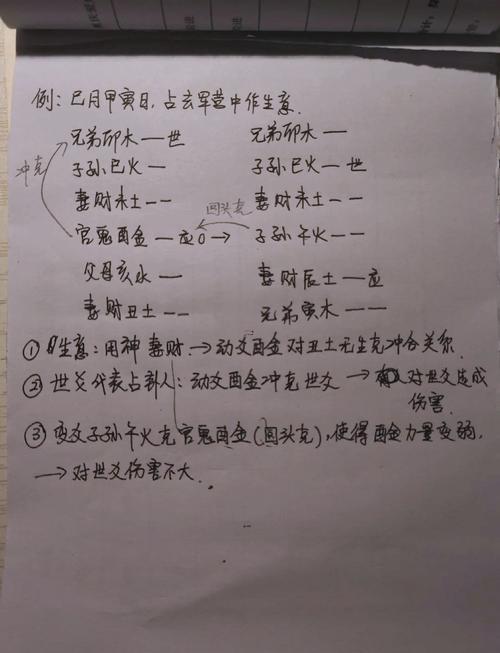 例：巳月甲寅日，占玄军营中作生意.
兄弟卯木 — 世 兄弟卯木 —
冲克 子孙巳火 — 子孙巳火 — 世
妻财未土 -- 妻财未土 --
回头克
官鬼酉金 — 应 O → 子孙午火 --
父母亥水 — 妻财辰土 — 应
妻财丑土 -- 兄弟寅木 --
① 生意：用神妻财.→动爻酉金对丑土无生克冲合关系.
② 世爻代表占卦人：动爻酉金冲克世爻 → 对世爻造成
伤害.
③ 变爻子孙午火克官鬼酉金(回头克)，使得酉金力量变弱.
→ 对世爻伤害不大.